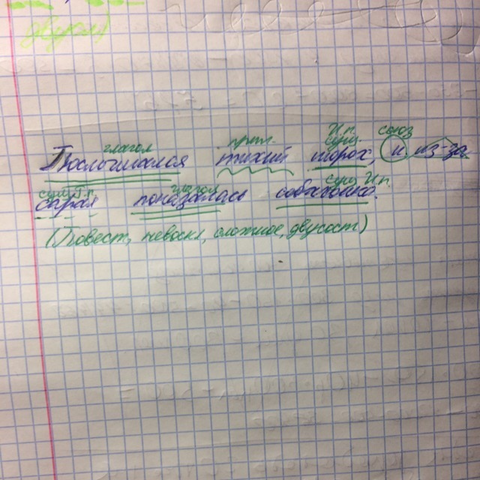 глагол прил. И.п. сущ. союз
Послышался тихий шорох, и из-за
сущ. Р.п. глагол сущ. И.п.
сарая показалась собачонка.
(Повест, невоскл, сложное, двусост)